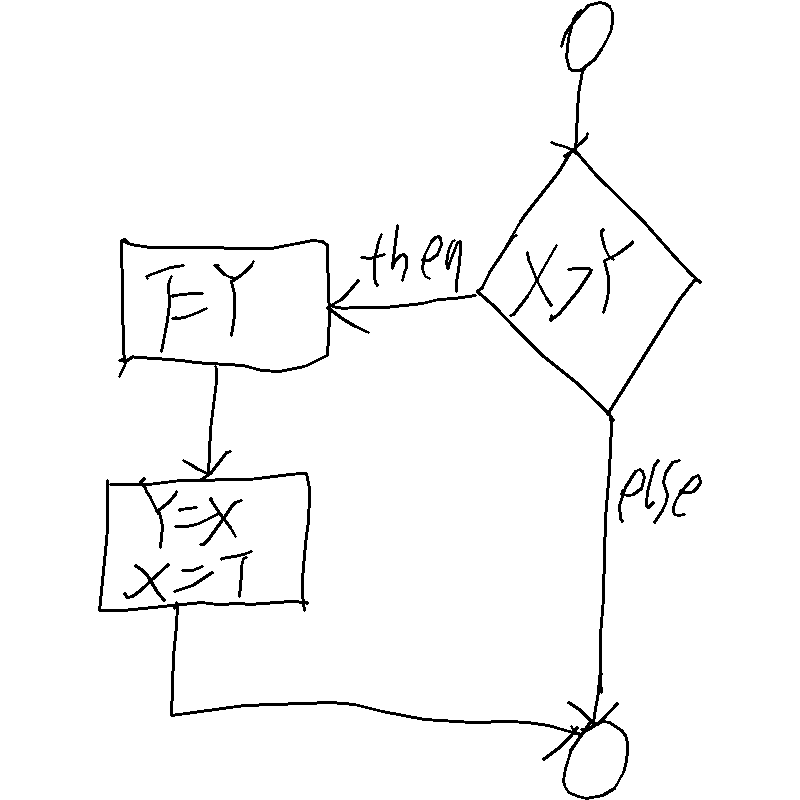 X>Y
then
T=Y
Y=X
X=T
else